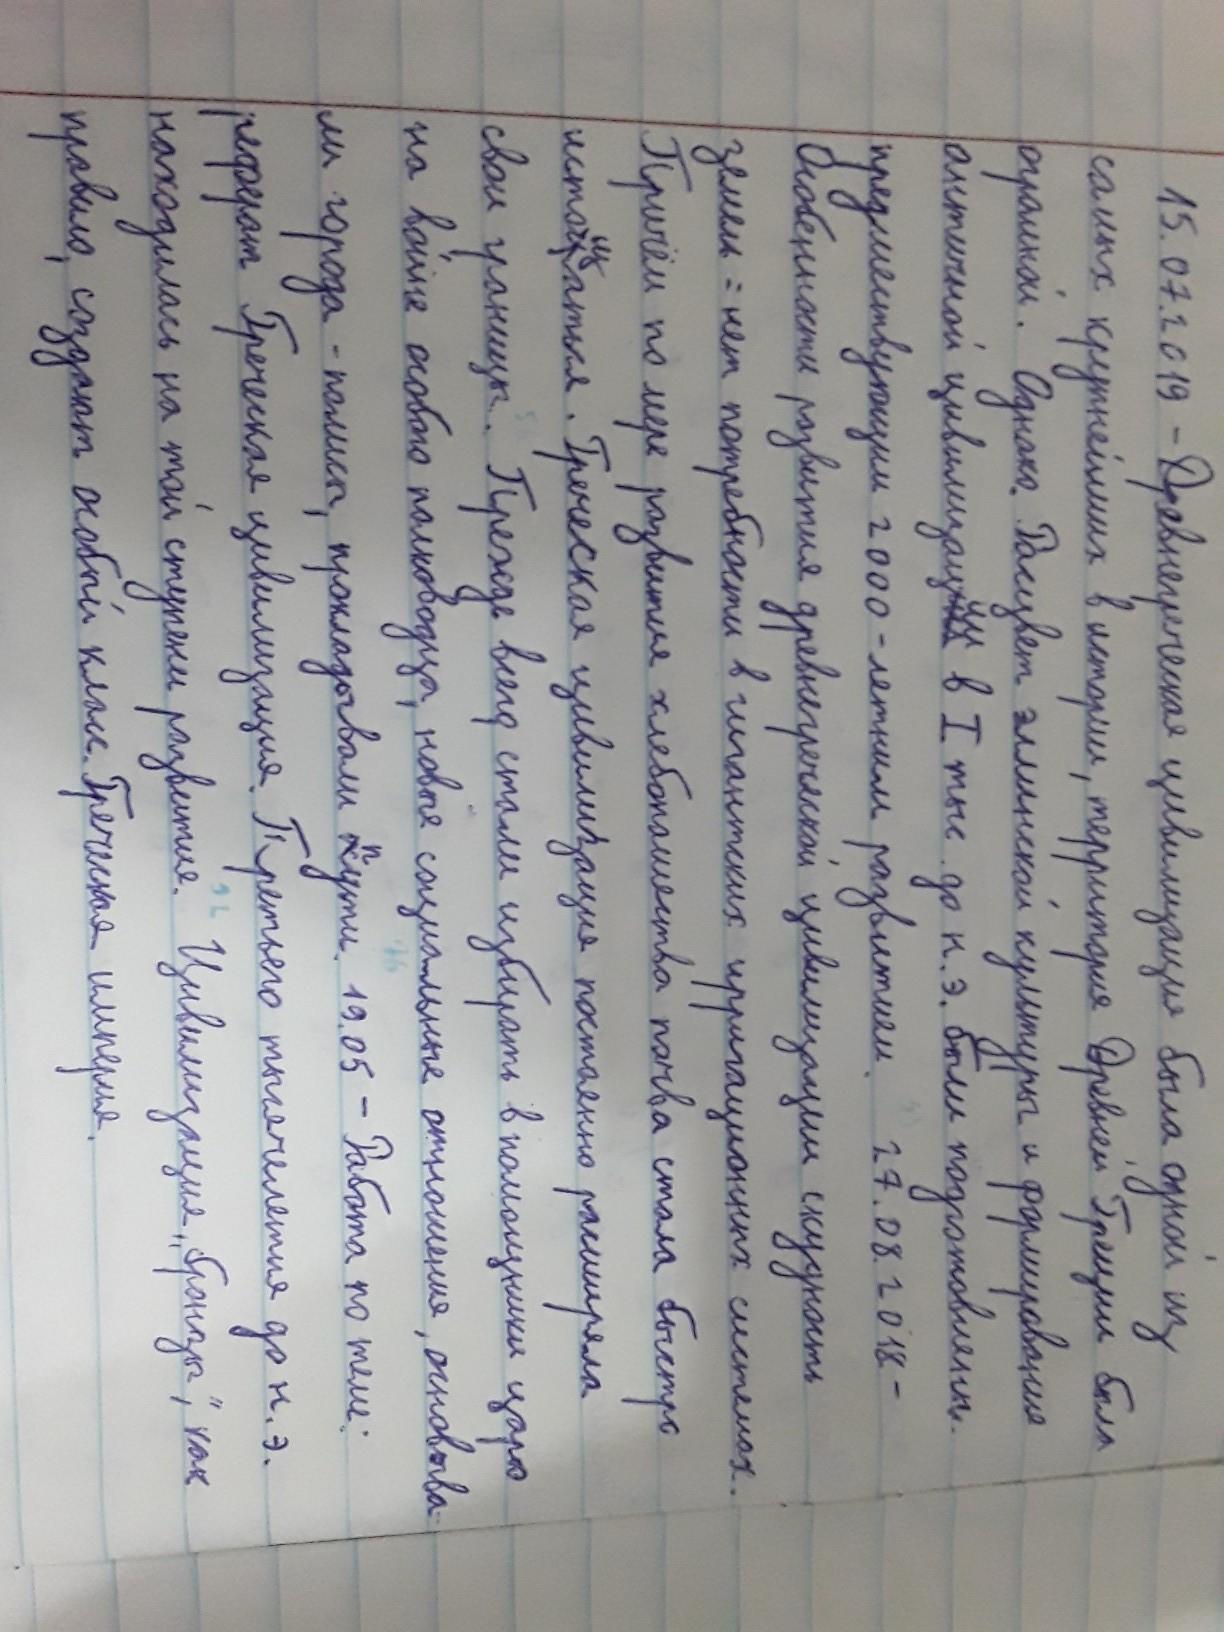 15.07.2019 - Древнегреческая цивилизация была одной из
самых крупнейших в истории, территория Древней Греции была
огромной. Однако. Расцвет эллинской культуры и формирование
античной цивилизации в I тыс. до н.э. были подготовлены.
предшествующим 2000-летним развитием. 27.08.2018 -
Особенности развития древнегреческой цивилизации скудность
земель = нет потребности в гигантских ирригационных системах.
Причём по мере развития хлебопашества почва стала быстро
истощаться. Греческая цивилизация постоянно расширяла
свои границы. Прежде всего стали избирать в помощники царю
на войне особого полководца, новые социальные отношения, основыва-
ли города - полисы, прокладывали пути. 19.05 - Работа по теме:
реферат Греческая цивилизация. Третьего тысячелетия до н.э.
находилась на той ступени развития. Цивилизация „бронзы", как
правило, создают особый класс. Греческая империя.